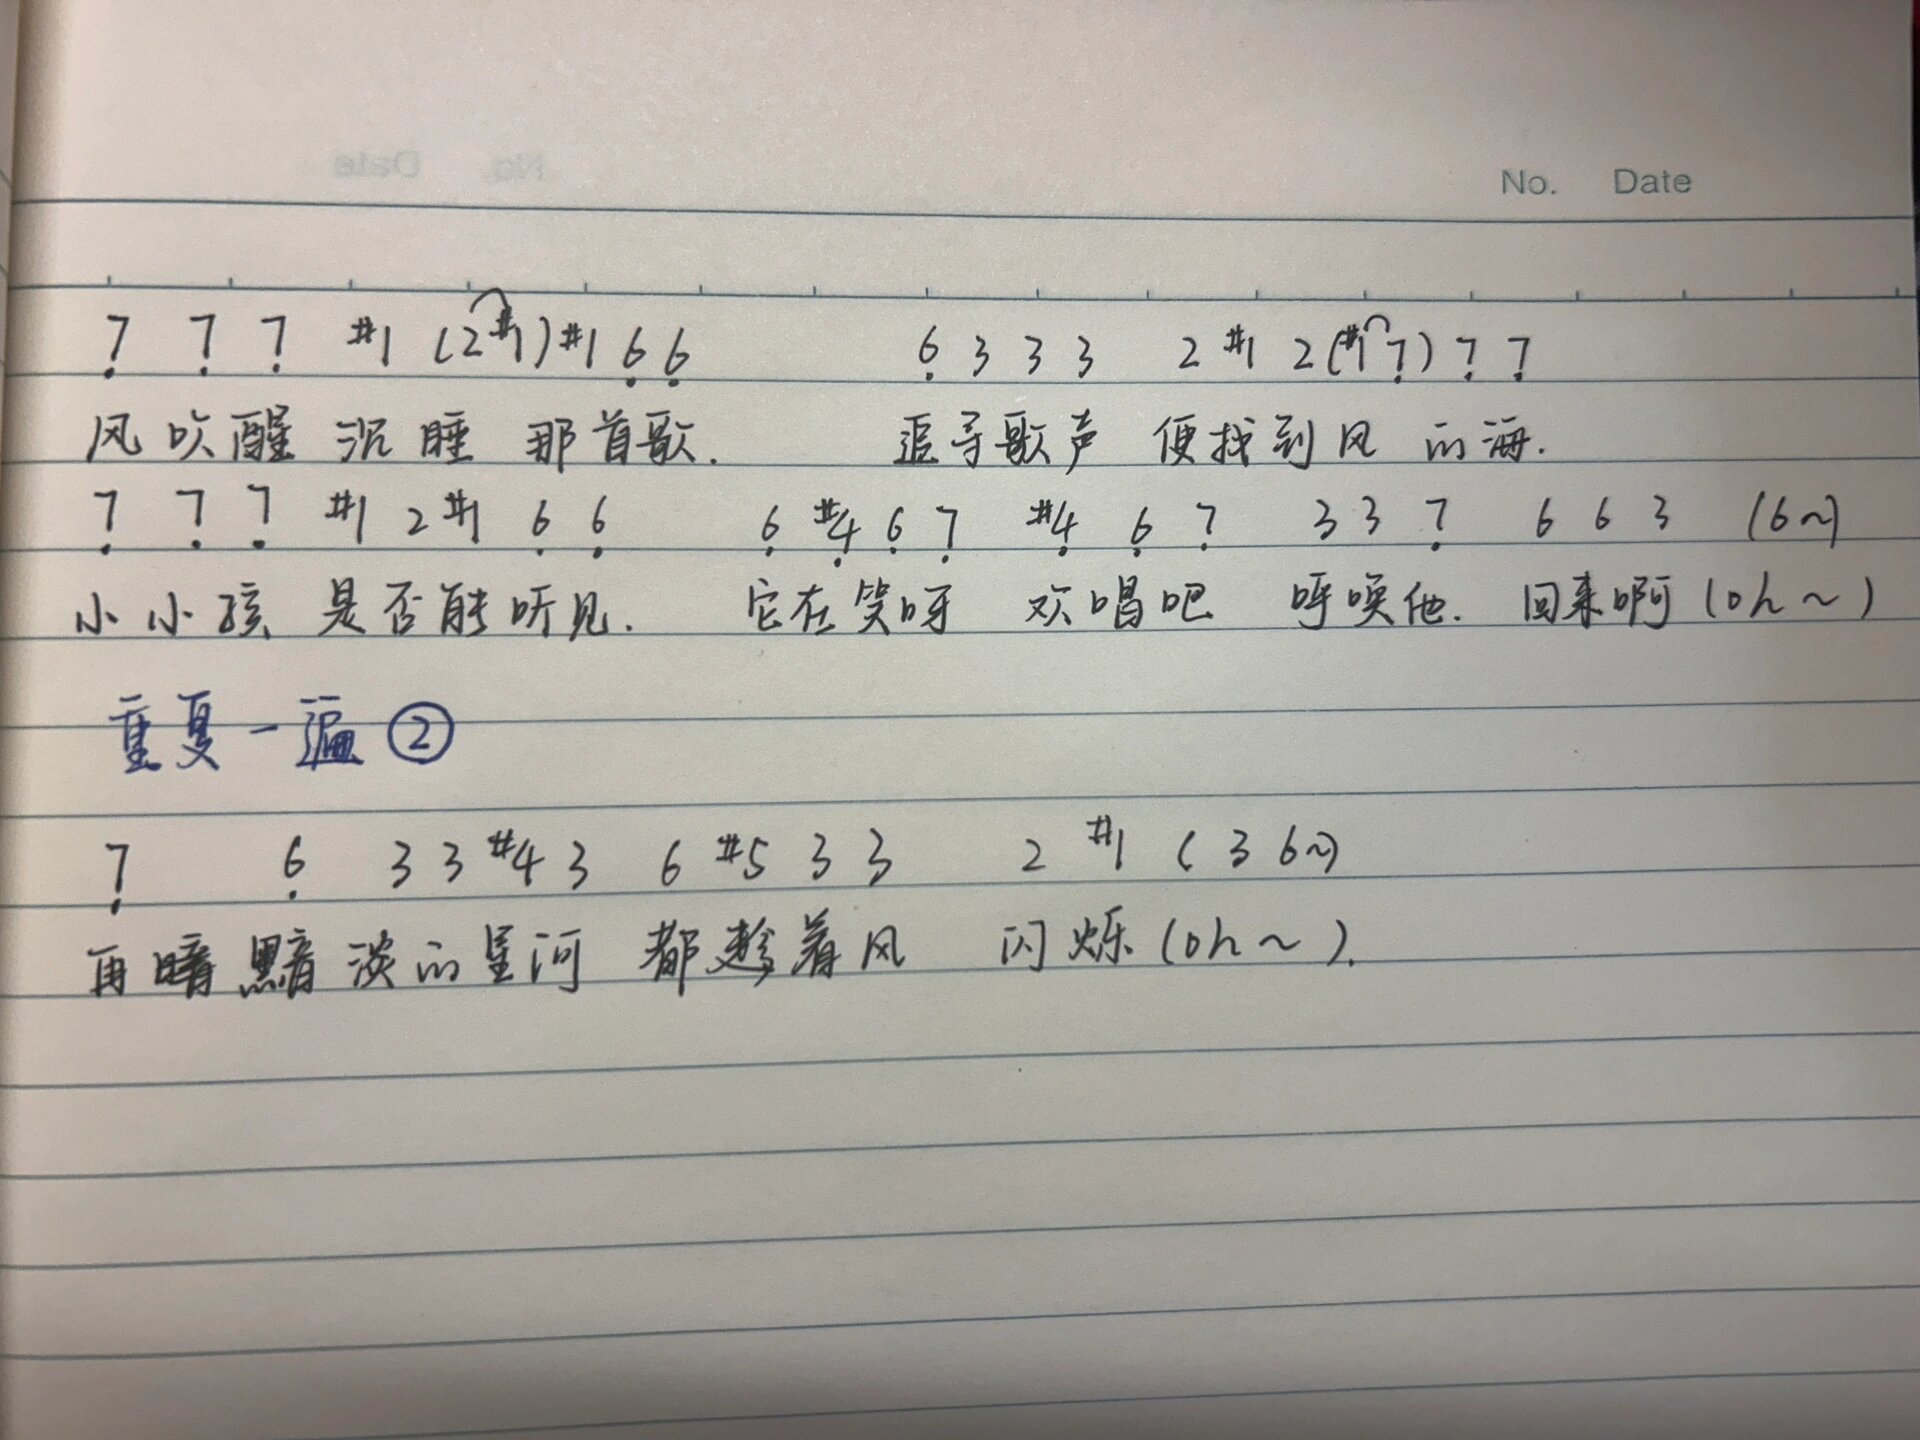 No. Date
7̣ 7̣ 7̣ #1 (2 #1) #1 6̣ 6̣ 6̣ 3 3 3 2 #1 2 (#1 7̣) 7̣ 7̣
风吹醒 沉睡 那首歌. 追寻歌声 便找到风 的海.
7̣ 7̣ 7̣ #1 2 #1 6̣ 6̣ 6̣ #4̣ 6̣ 7̣ #4̣ 6̣ 7̣ 3 3 7̣ 6 6 3 (6~)
小小孩 是否能听见. 它在笑呀 欢唱吧 呼唤他. 回来啊 (oh~)
重复一遍 ②
7̣ 6̣ 3 3 #4 3 6 #5 3 3 2 #1 (3 6~)
再暗黯淡的星河 都趁着风 闪烁 (oh~).